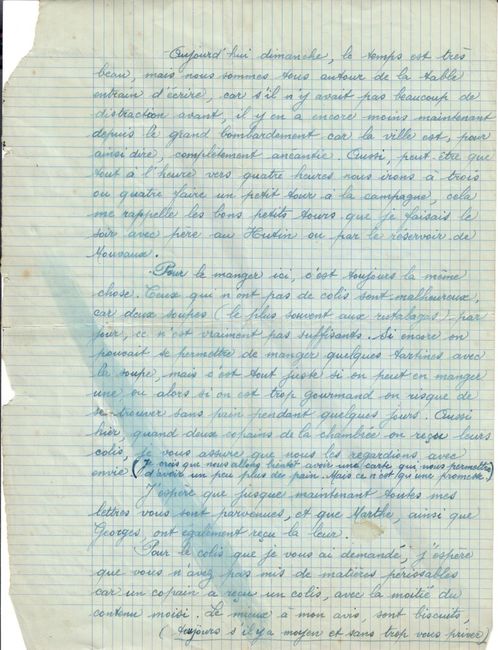 -Aujourd'hui dimanche, le temps est très
beau, mais nous sommes tous autour de la table
entrain d'écrire, car s'il n'y avait pas beaucoup de
distraction avant, il y en a encore moins maintenant
depuis le grand bombardement car la ville est, pour
ainsi dire, complètement anéantie. Aussi, peut-être que
tout à l'heure vers quatre heures nous irons à trois
ou quatre faire un petit tour à la campagne, cela
me rappelle les bons petits tours que je faisais le
soir avec père au Hutin ou par le réservoir de
-Pour le manger ici, c'est toujours la même
chose. Ceux qui n'ont pas de colis sont malheureux,
car deux soupes (le plus souvent aux rutabagas) par
jour, ce n'est vraiment pas suffisants. Si encore on
pouvait se permettre de manger quelques tartines avec
la soupe, mais c'est tout juste si on peut en manger
une ou alors si on est trop gourmand on risque de
se trouver sans pain pendant quelques jours. Aussi
hier, quand deux copains de la chambrée on reçu leurs
colis, je vous assure que nous les regardions avec
envie (Je crois que nous allons bientôt avoir une carte qui nous permettra
d'avoir un peu plus de pain. Mais ce n'est qu'une promesse.)
J'espère que jusque maintenant toutes mes
lettres vous sont parvenues, et que Marthe, ainsi que
Georges, ont également reçu la leur.
Pour le colis que je vous ai demandé, j'espère
que vous n'avez pas mis de matières périssables
car un copain a reçu un colis, avec la moitié du
contenu moisi. Le mieux à mon avis, sont biscuits,
(toujours s'il y a moyen et sans trop vous priver)